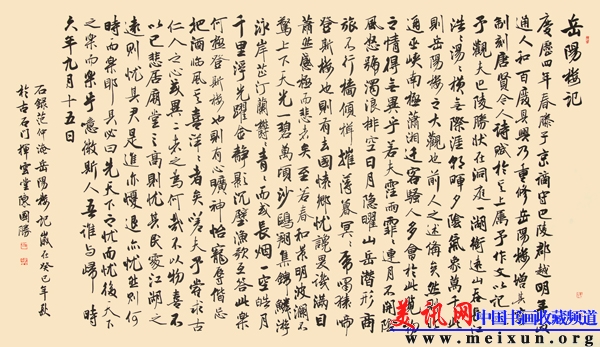 岳陽樓記
慶曆四年春滕子京謫守巴陵郡越明年政
通人和百廢具興乃重修岳陽樓增其舊
制刻唐賢今人詩賦於其上屬予作文以記之
予觀夫巴陵勝狀在洞庭一湖銜遠山吞長江
浩浩湯湯橫無際涯朝暉夕陰氣象萬千此
則岳陽樓之大觀也前人之述備矣然則北
通巫峽南極瀟湘遷客騷人多會於此覽物
之情得無異乎若夫霪雨霏霏連月不開陰
風怒號濁浪排空日月隱曜山岳潛形商
旅不行檣傾楫摧薄暮冥冥虎嘯猿啼
登斯樓也則有去國懷鄉憂讒畏譏滿目
蕭然感極而悲者矣至若春和景明波瀾不
驚上下天光一碧萬頃沙鷗翔集錦鱗游
泳岸芷汀蘭鬱鬱青青而或長煙一空皓月
千里浮光躍金靜影沉璧漁歌互答此樂
何極登斯樓也則有心曠神怡寵辱偕忘
把酒臨風其喜洋洋者矣嗟夫予嘗求古
仁人之心或異二者之為何哉不以物喜不
以己悲居廟堂之高則憂其民處江湖之
遠則憂其君是進亦憂退亦憂然則何
時而樂耶其必曰先天下之憂而憂後天下
之樂而樂乎噫微斯人吾誰與歸 時
六年九月十五日
右錄范仲淹岳陽樓記歲在癸巳年秋
於古石門揮雲堂陳國勝
美讯网 中国书画收藏频道
www.meixun.org